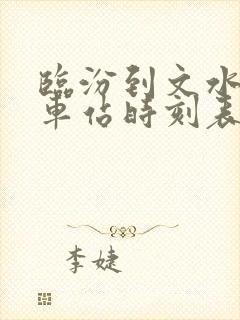 臨汾到文水
車佔時刻表
李婕